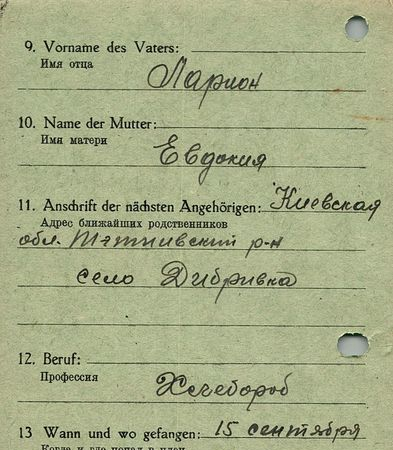 9. Vorname des Vaters:
Имя отца
Ларион
10. Name der Mutter:
Имя матери
Евдокия
11. Anschrift der nächsten Angehörigen: Киевская
Адрес ближайших родственников
обл. Тэтиивский р-н
село Дибривка
12. Beruf:
Профессия
Хлебороб
13 Wann und wo gefangen: 15 сентября
Когда и где попал в плен